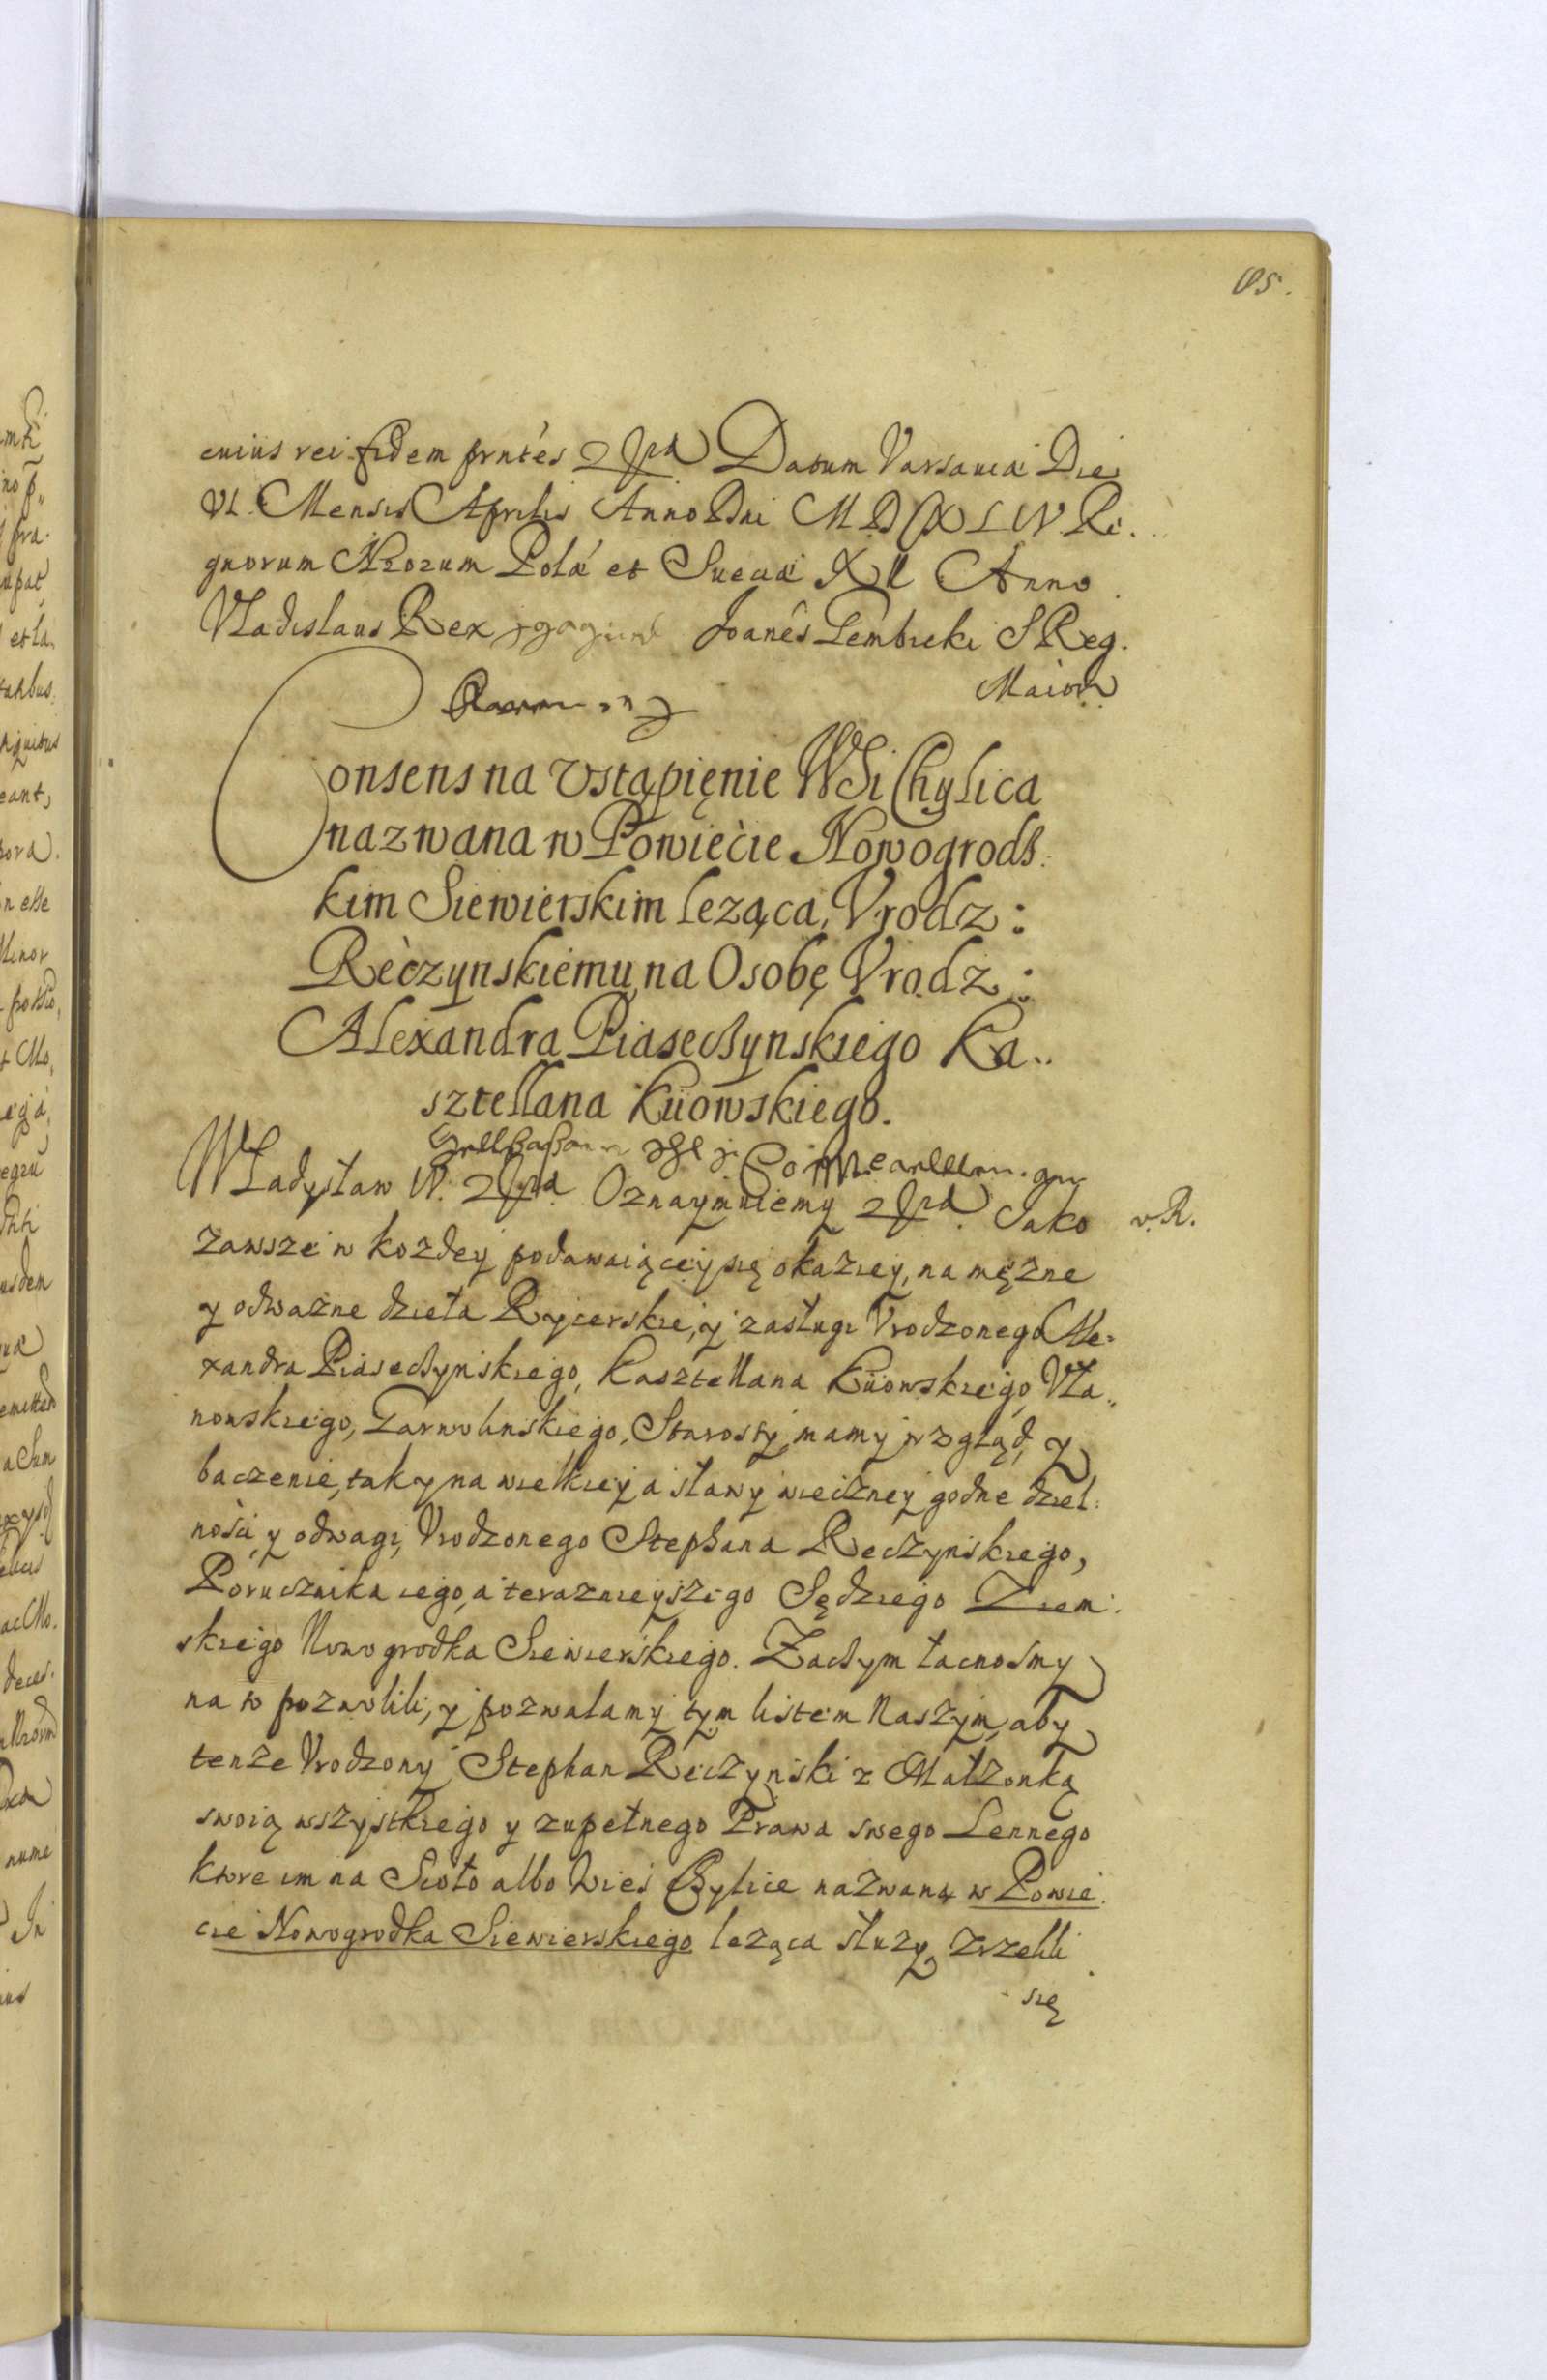 cuius rei fidem prntes Datum Varsaviæ Die
VI. Mensis Aprilis Anno Dni MDCXLIV Re.
gnorum Nrorum Polæ et Sueciæ XII Anno
Vladislaus Rex Joanês Gembicki S Reg.
Maior
Consens na Vstąpięnie WSi Chylica
nazwana w Powiecie Nowogrods.
kim Siewierskim leząca, Vrodz:
Rèczynskiemu na Osobę Vrodz:
Alexandra Piaseczynskiego Ka..
sztellana Kiiowskiego.
Władysław IV. Oznaymuiemy Jako v. R.
zawsze w kozdey podawaiącey się okaziey, na męzne
y odwazne dzieła Rycerskie, y zasługi Vrodzonego Ale:
xandra Piaseczynskiego, Kasztellana Kiiowskiego, Vła..
nowskiego, Garwolinskiego, Starosty, mamy wzgląd, y
baczenie, tak y na wielkiey a sławy wieczney godne dziel:
nosci, y odwagi, Vrodzonego Stephana Reczynskiego,
Porucznika iego, a teraznieyszego Sędziego Ziem.
skiego Nowogrodka Siewierskiego. Zaczym łacnosmy
na to pozwolili, y pozwalamy tym listem Naszym, aby
tenze Vrodzony Stephan Reczynski z Małzonką
swoią wszystkiego y zupełnego Prawa swego Lennego
ktore im na Sioło albo Wies Chylice nazwaną w Powie.
cie Nowogrodka Siewierskiego leząca słuzy, zrzekli
się